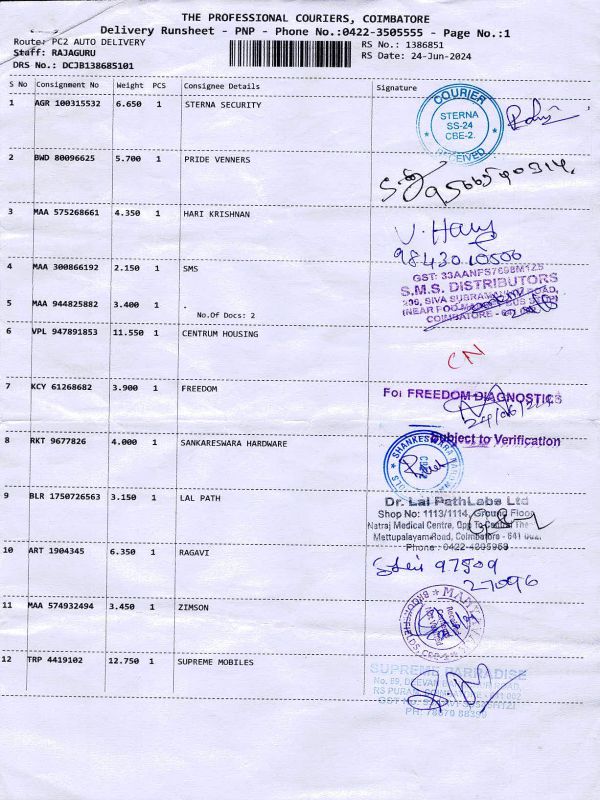 THE PROFESSIONAL COURIERS, COIMBATORE
Delivery Runsheet - PNP - Phone No.:0422-3505555 - Page No.:1
Route: PC2 AUTO DELIVERY
RS No.: 1386851
Staff: RAJAGURU
RS Date: 24-Jun-2024
DRS No.: DCJB138685101
S No Consignment No Weight PCS Consignee Details Signature
1 AGR 100315532 6.650 1 STERNA SECURITY
COURIER
STERNA
SS-24
CBE-2.
RECEIVED
2 BWD 80096625 5.700 1 PRIDE VENNERS
3 MAA 575268661 4.350 1 HARI KRISHNAN
V. Hari
9843010500
4 MAA 300866192 2.150 1 SMS
GST: 33AANFS7698M1ZS
S.M.S. DISTRIBUTORS
COIMBATORE
5 MAA 944825882 3.400 1 .
No.Of Docs: 2
6 VPL 947891853 11.550 1 CENTRUM HOUSING
CN
7 KCY 61268682 3.900 1 FREEDOM
For FREEDOM DIAGNOSTICS
24/06/2023
Subject to Verification
8 RKT 9677826 4.000 1 SANKARESWARA HARDWARE
9 BLR 1750726563 3.150 1 LAL PATH
Dr. Lal PathLabs Ltd
Shop No: 1113/1114, Ground Floor
Natraj Medical Centre, Opp To Central The
Mettupalayam Road, Coimbatore - 641 002.
Phone: 0422-4205968
10 ART 1904345 6.350 1 RAGAVI
97509
27096
11 MAA 574932494 3.450 1 ZIMSON
12 TRP 4419102 12.750 1 SUPREME MOBILES
SUPREME PARRADISE